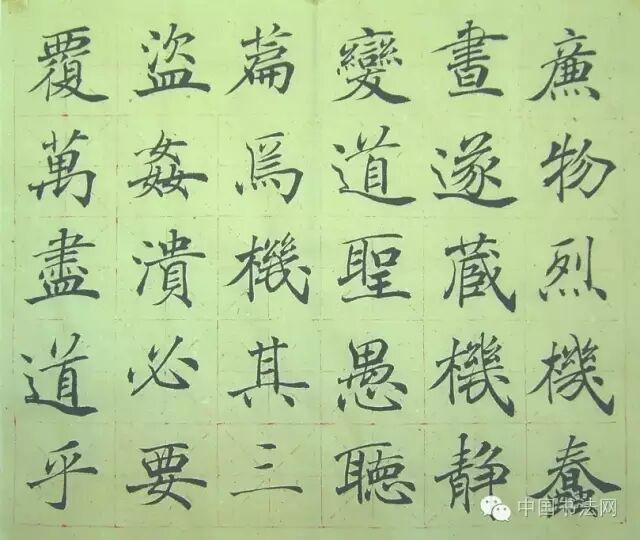 廉物烈機蠢
晝遂蔵機静
變道聖愚聽
篇爲機其三
盜姦潰必要
覆萬盡道乎
中国书法网